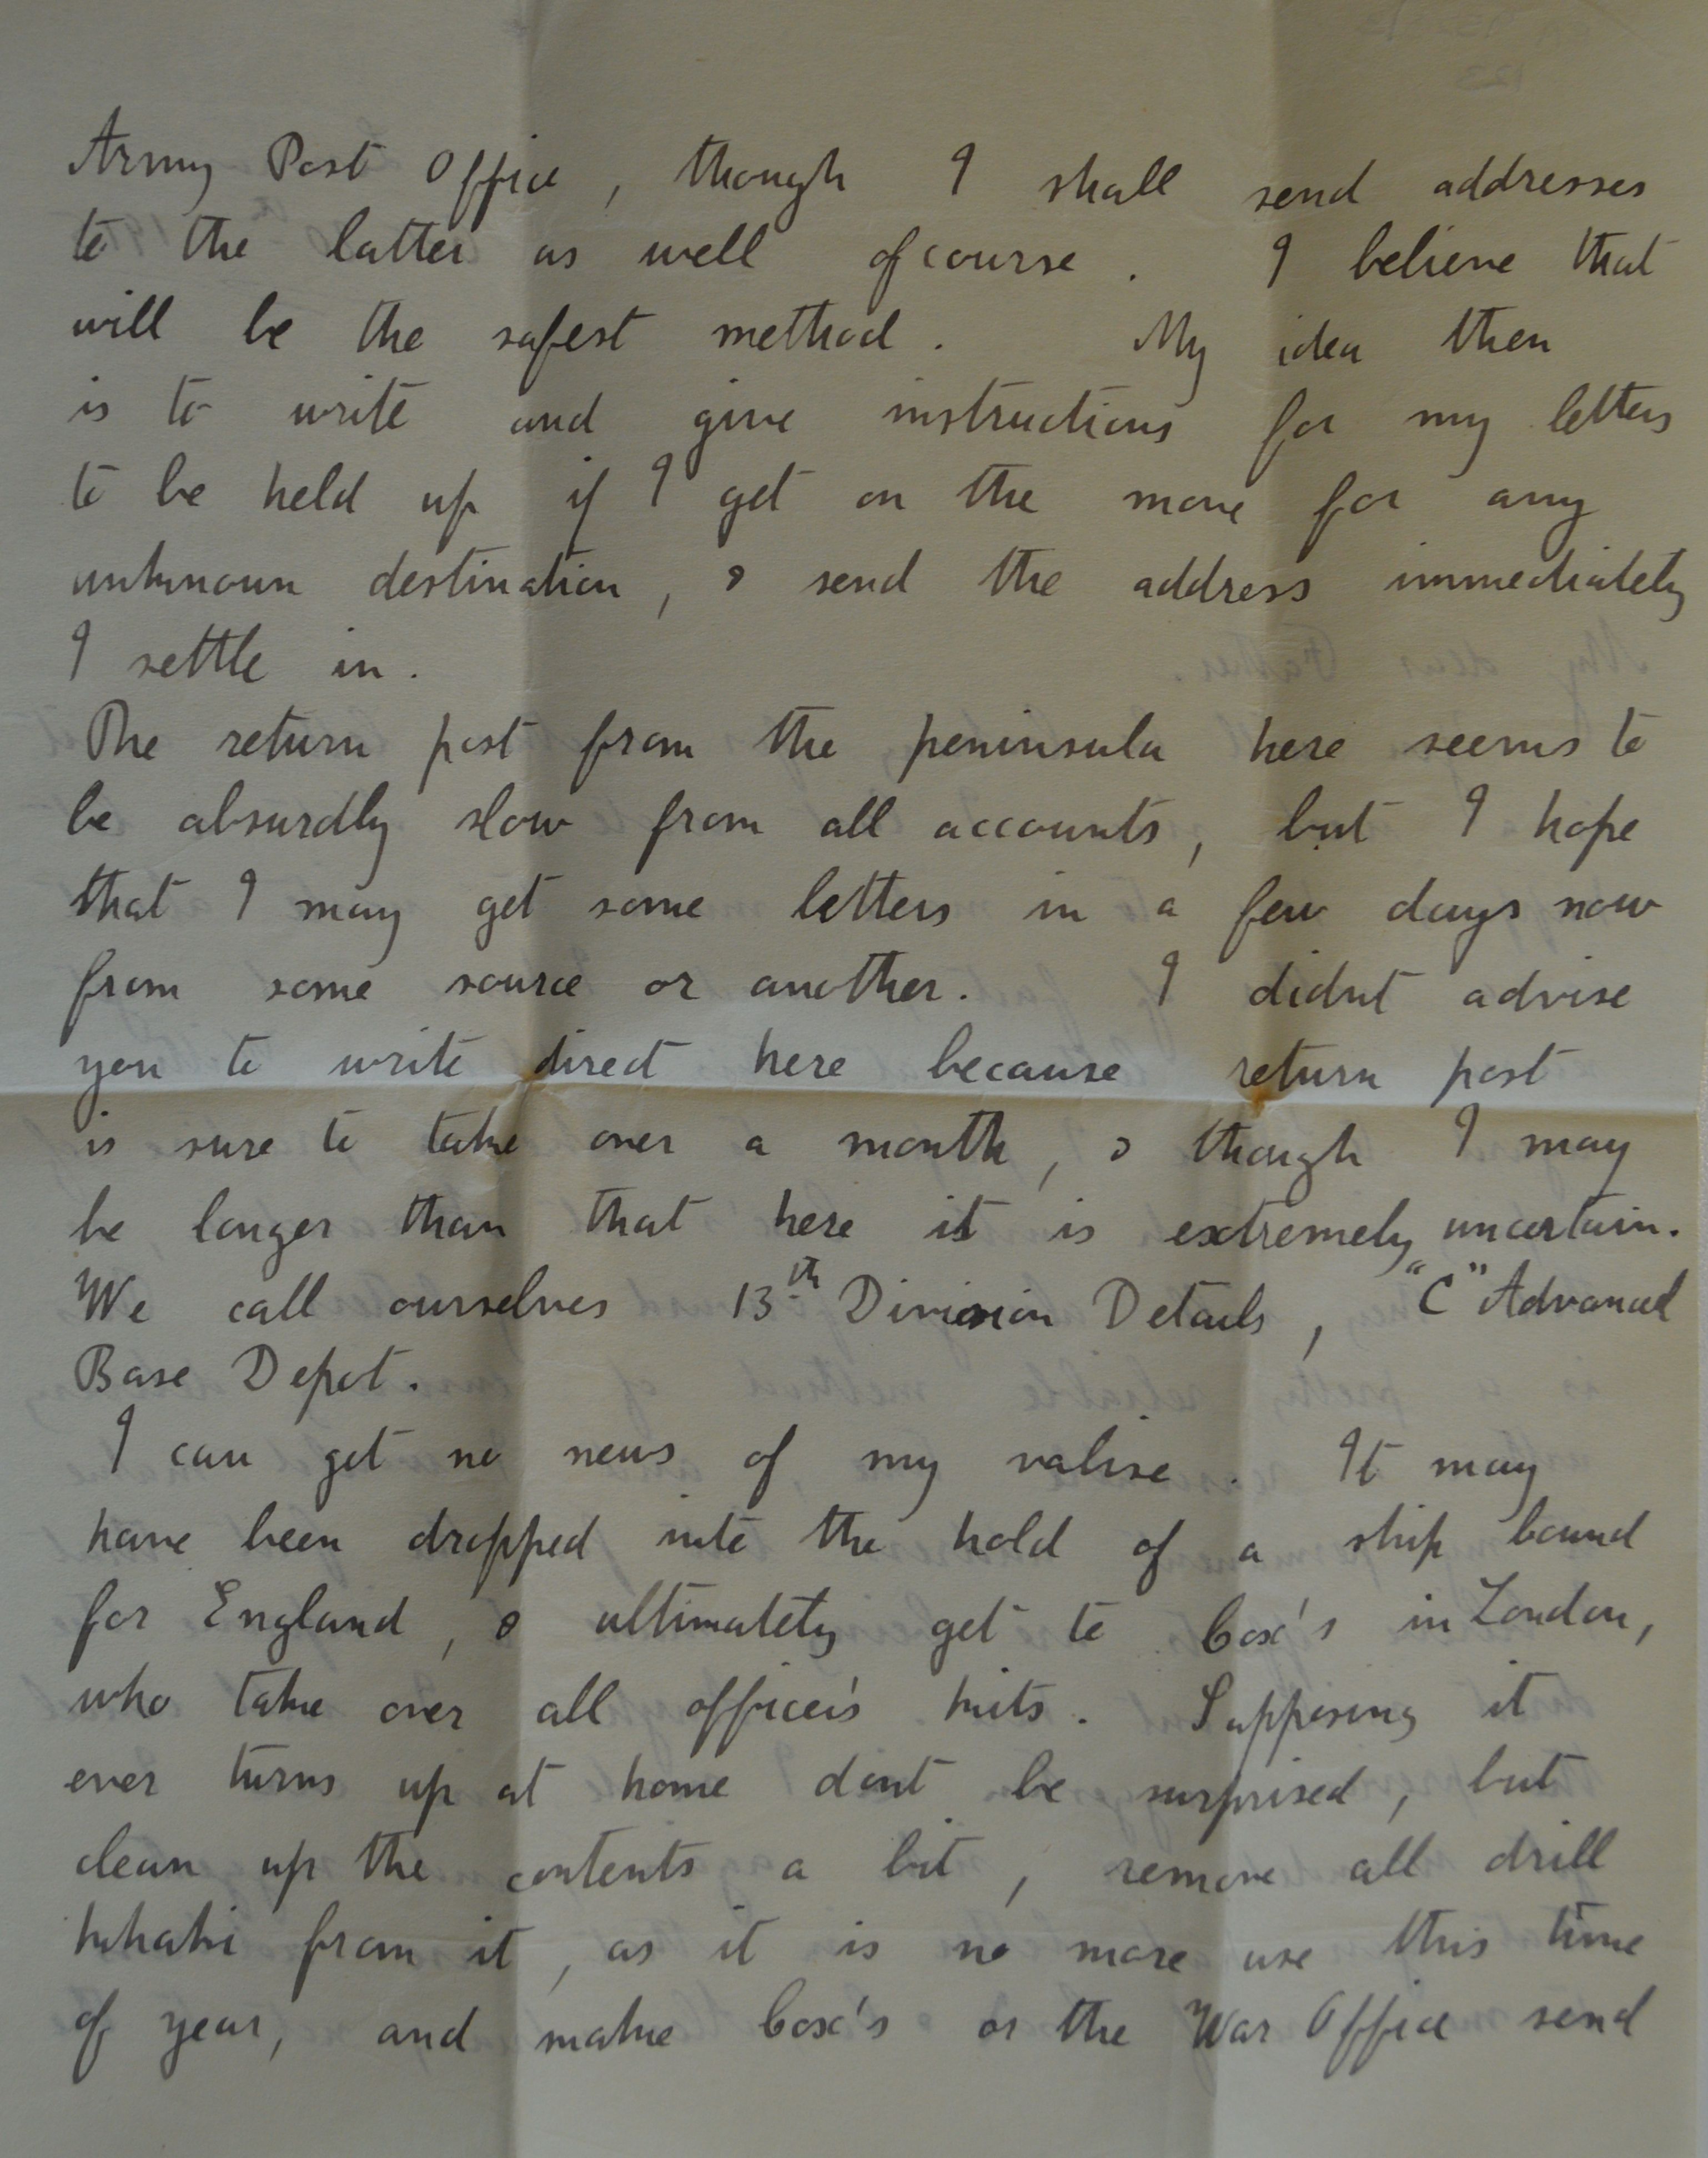 Army Post Office, though I shall send addresses
to the latter as well ofcourse. I believe that
will be the safest method. My idea then
is to write and give instructions for my letters
to be held up if I get on the move for any
unknown destination, & send the address immediately
I settle in.
The return post from the peninsula here seems to
be absurdly slow from all accounts, but I hope
that I may get some letters in a few days now
from some source or another. I didnt advise
you to write direct here because return post
is sure to take over a month, & though I may
be longer than that here it is extremely uncertain.
We call ourselves 13th Division Details, "C" Advanced
Base Depot.
I can get no news of my valise. It may
have been dropped into the hold of a ship bound
for England, & ultimately get to Cox's in London,
who take over all officer's kits. Supposing it
ever turns up at home dont be surprised, but
clean up the contents a bit, remove all drill
khaki from it, as it is no more use this time
of year, and make Cox's or the War Office send